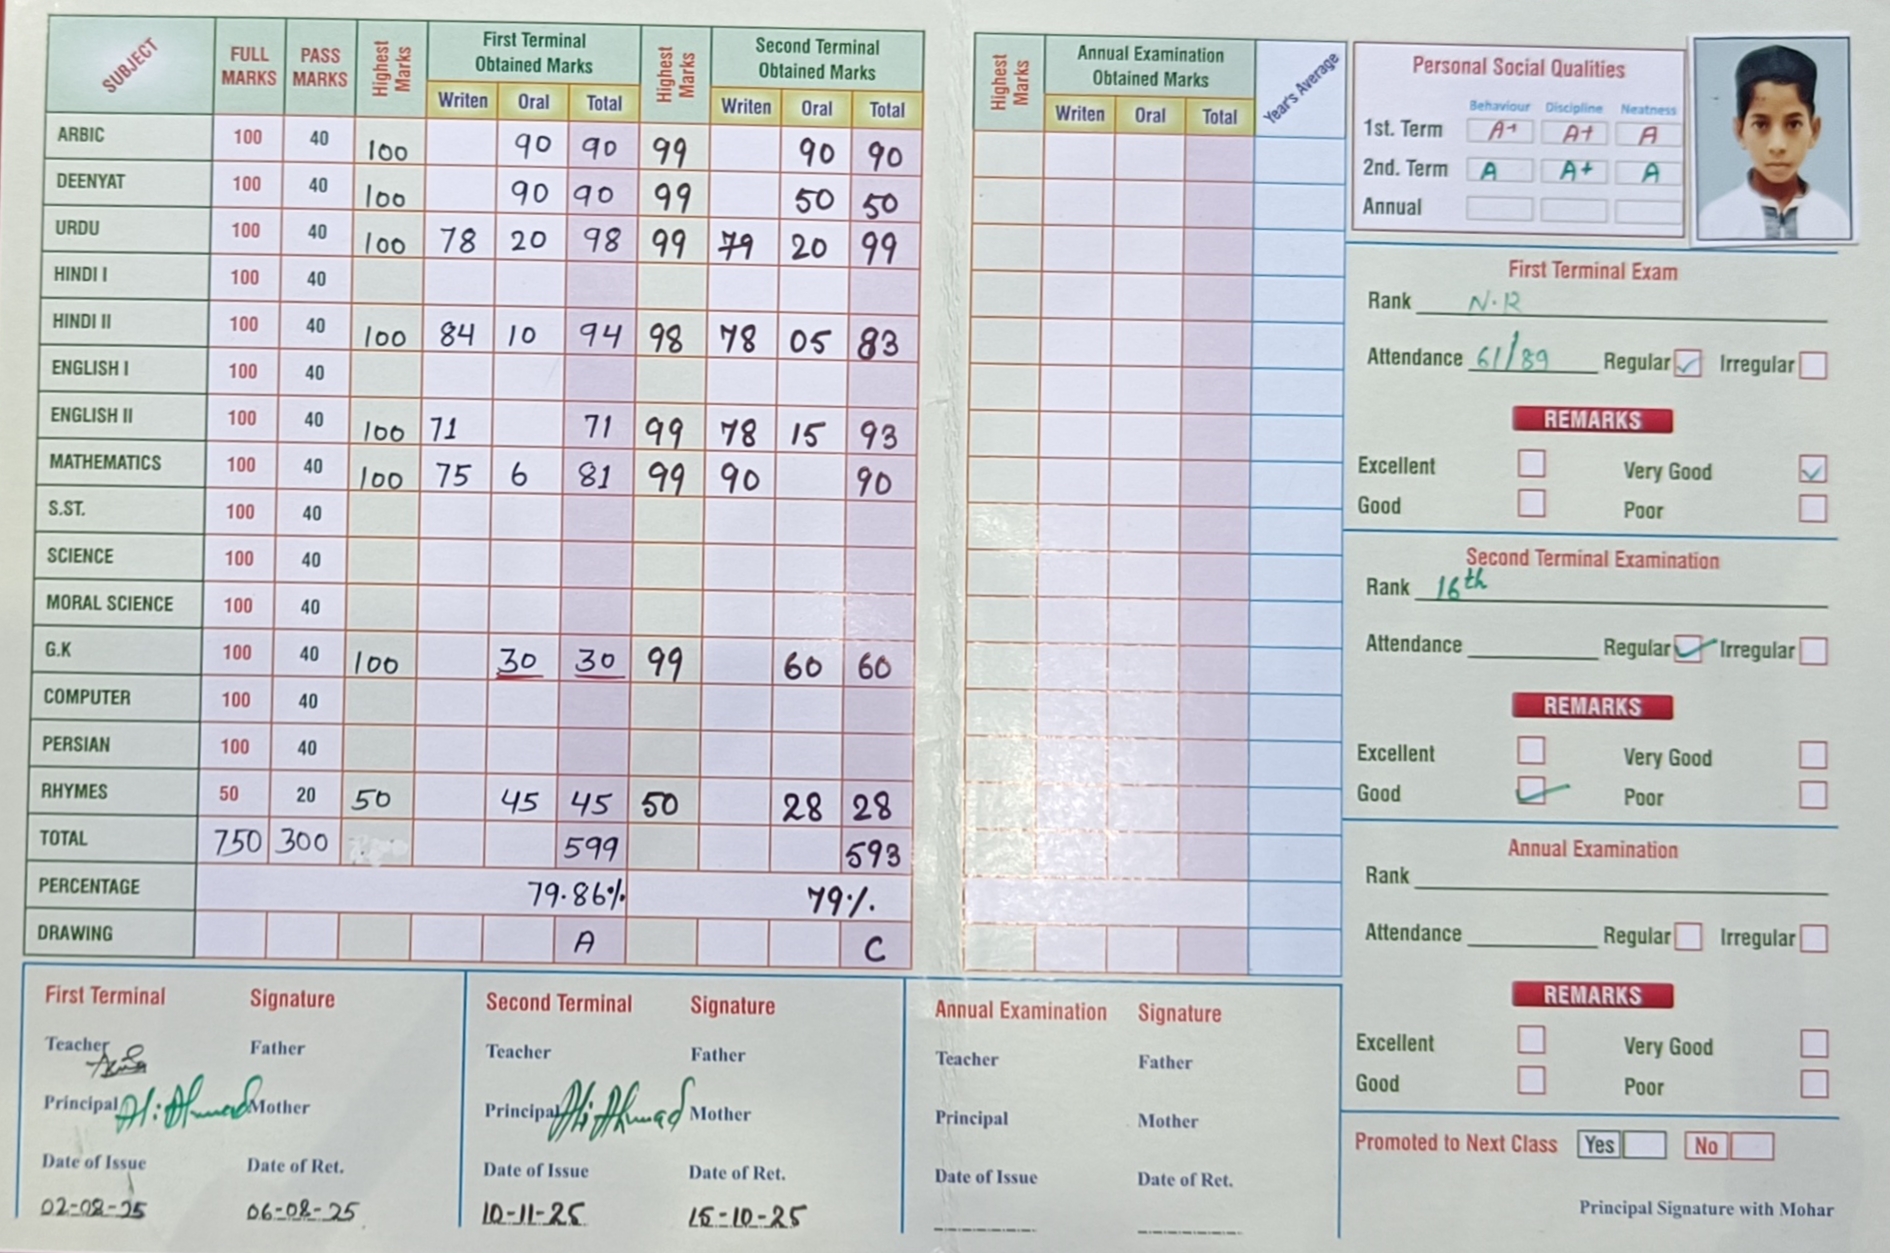 SUBJECT FULL MARKS PASS MARKS Highest Marks First Terminal Obtained Marks Highest Marks Second Terminal Obtained Marks
Writen Oral Total Writen Oral Total
ARBIC 100 40 100 90 90 99 90 90
DEENYAT 100 40 100 90 90 99 50 50
URDU 100 40 100 78 20 98 99 79 20 99
HINDI I 100 40
HINDI II 100 40 100 84 10 94 98 78 05 83
ENGLISH I 100 40
ENGLISH II 100 40 100 71 71 99 78 15 93
MATHEMATICS 100 40 100 75 6 81 99 90 90
S.ST. 100 40
SCIENCE 100 40
MORAL SCIENCE 100 40
G.K 100 40 100 30 30 99 60 60
COMPUTER 100 40
PERSIAN 100 40
RHYMES 50 20 50 45 45 50 28 28
TOTAL 750 300 599 593
PERCENTAGE 79.86% 79%
DRAWING A C
Highest Marks Annual Examination Obtained Marks Year's Average
Writen Oral Total
Personal Social Qualities
Behaviour Discipline Neatness
1st. Term A+ A+ A
2nd. Term A A+ A
Annual
First Terminal Exam
Rank N.R
Attendance 61/89 Regular Irregular
REMARKS
Excellent Very Good
Good Poor
Second Terminal Examination
Rank 16th
Attendance Regular Irregular
REMARKS
Excellent Very Good
Good Poor
Annual Examination
Rank
Attendance Regular Irregular
REMARKS
Excellent Very Good
Good Poor
Promoted to Next Class Yes No
Principal Signature with Mohar
First Terminal Signature
Teacher Father
Principal Mother
Date of Issue Date of Ret.
02-08-25 06-08-25
Second Terminal Signature
Teacher Father
Principal Mother
Date of Issue Date of Ret.
10-11-25 15-10-25
Annual Examination Signature
Teacher Father
Principal Mother
Date of Issue Date of Ret.